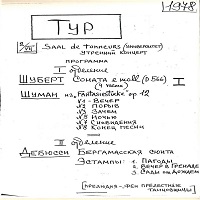 1978
ТУР
5/VII SAAL de TONNEURS (УНИВЕРСИТЕТ)
УТРЕННИЙ КОНЦЕРТ
ПРОГРАММА
I отделение
ШУБЕРТ СОНАТА e moll (D 566) I
(4 части)
ШУМАН из „Fantasiestücke" op 12
№1 ВЕЧЕР
№2 ПОРЫВ
№3 ЗАЧЕМ
№5 НОЧЬЮ
№7 СНОВИДЕНИЯ
№8 КОНЕЦ ПЕСНИ
II отделение
ДЕБЮССИ БЕРГАМАССКАЯ СЮИТА
ЭСТАМПЫ: 1. ПАГОДЫ
2. ВЕЧЕР В ГРЕНАДЕ
3. САДЫ ПОД ДОЖДЕМ
ПРЕЛЕСТНЫЕ
ТАНЦОВЩИЦЫ)